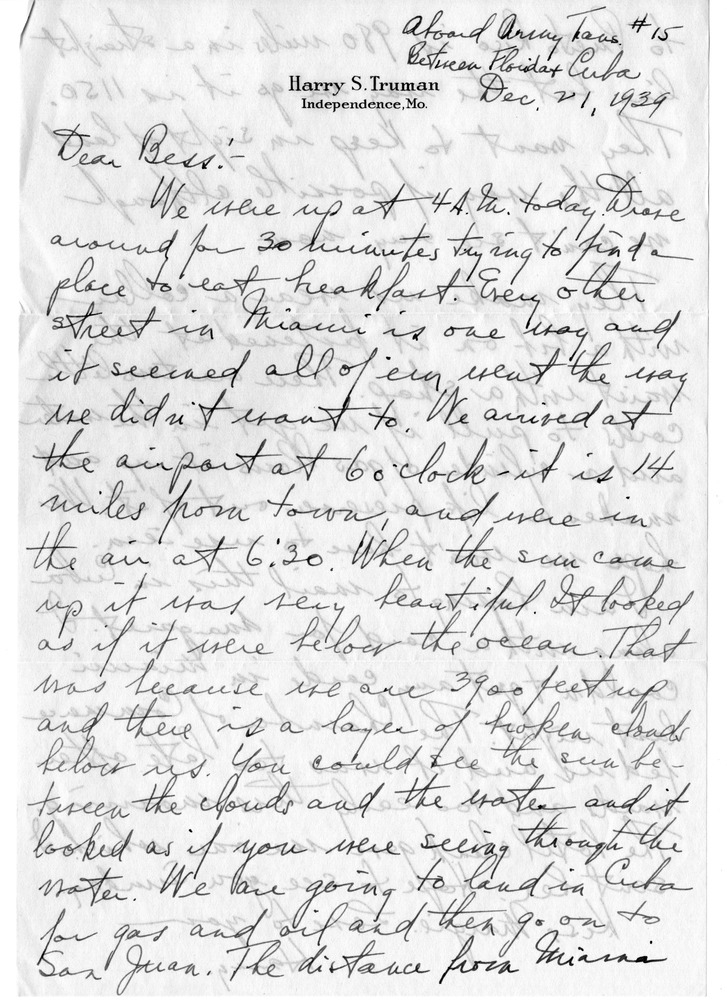 Aboard Army Trans. #15
Between Florida & Cuba
Dec. 21, 1939
Harry S. Truman
Independence, Mo.
Dear Bess:-
We were up at 4 A.M. today. Drove
around for 30 minutes trying to find a
place to eat breakfast. Every other
street in Miami is one way and
it seemed all of 'em went the way
we didn't want to. We arrived at
the airport at 6 o'clock - it is 14
miles from town, and were in
the air at 6:30. When the sun came
up it was very beautiful. It looked
as if it were below the ocean. That
was because we are 3900 feet up
and there is a layer of broken clouds
below us. You could see the sun be-
tween the clouds and the water and it
looked as if you were seeing through the
water. We are going to land in Cuba
for gas and oil and then go on to
San Juan. The distance from Miami